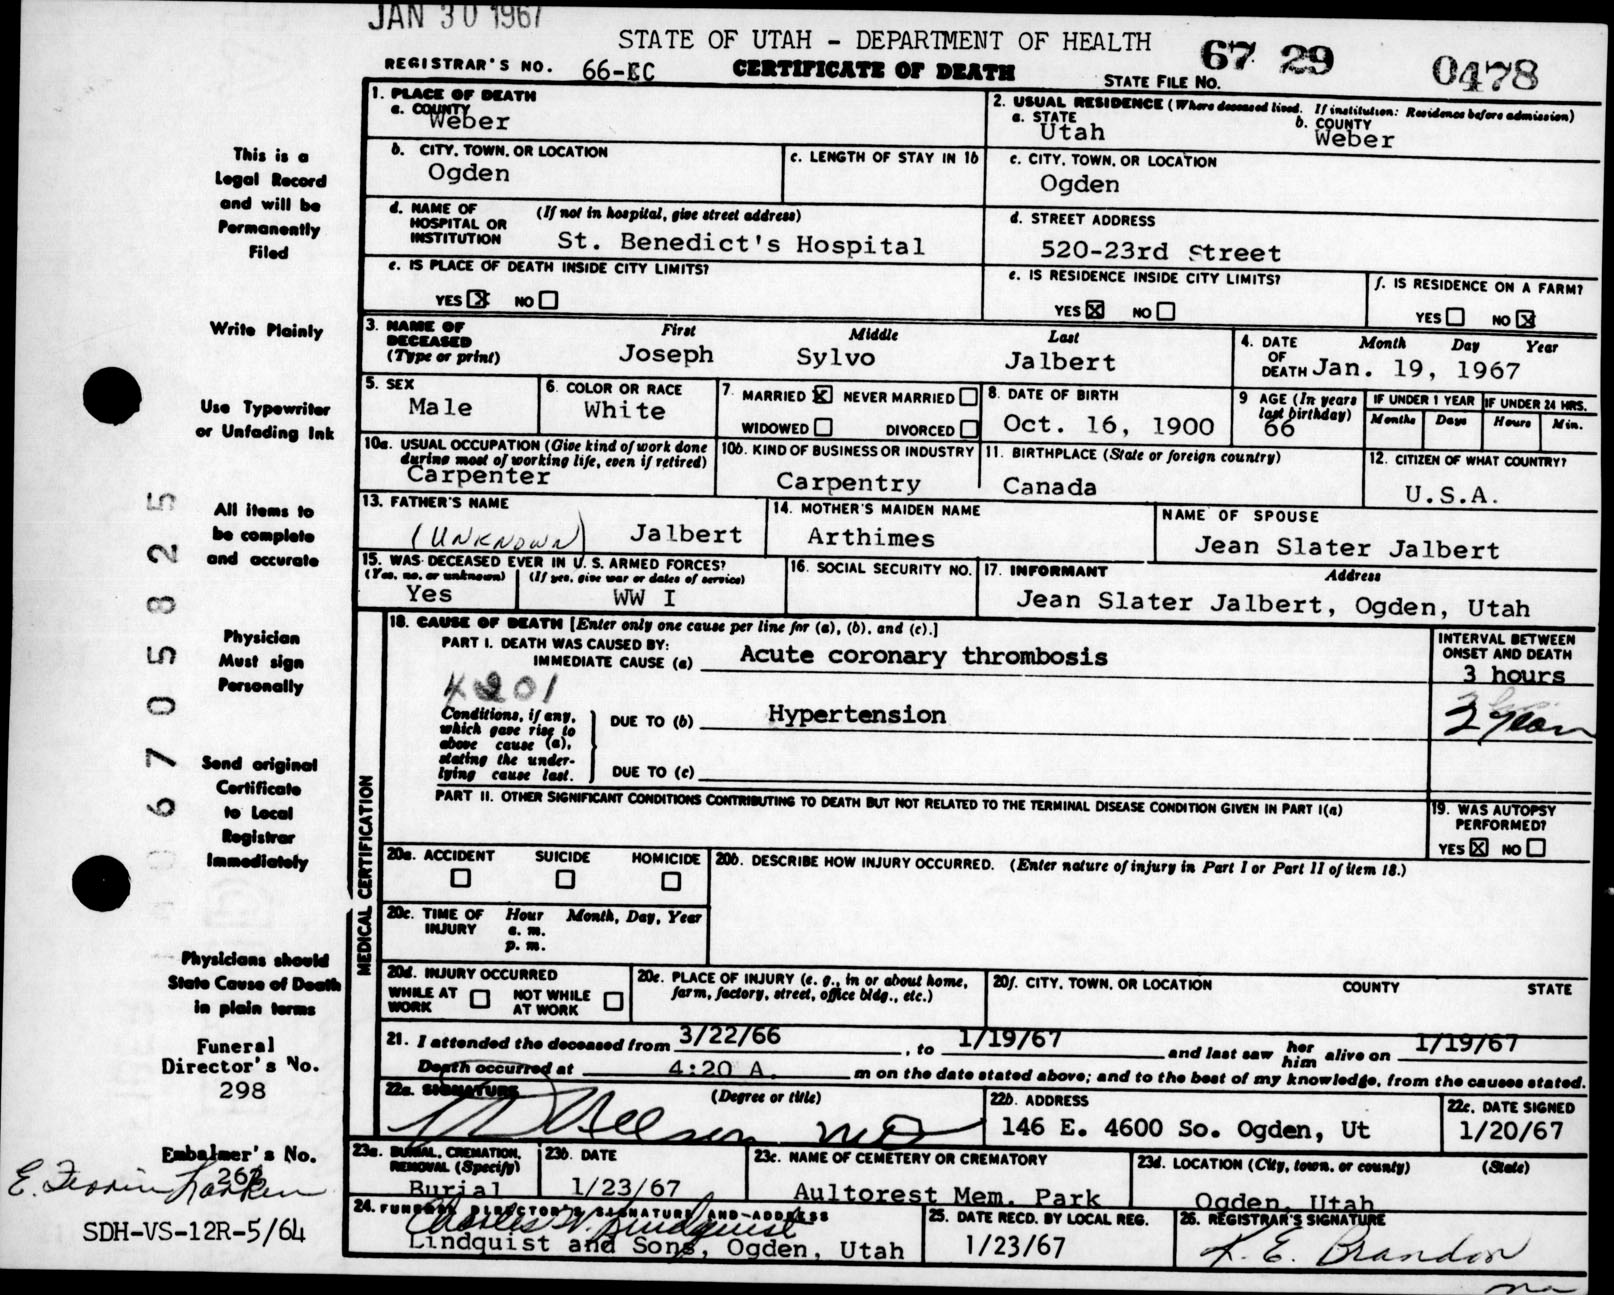 JAN 30 1967
STATE OF UTAH - DEPARTMENT OF HEALTH
REGISTRAR'S NO. 66-EC CERTIFICATE OF DEATH STATE FILE NO. 67 29 0478
This is a
Legal Record
and will be
Permanently
Filed
Write Plainly
Use Typewriter
or Unfading Ink
All items to
be complete
and accurate
Physician
Must sign
Personally
Send original
Certificate
to Local
Registrar
Immediately
Physicians should
State Cause of Death
in plain terms
Funeral
Director's No.
298
Embalmer's No.
SDH-VS-12R-5/64
067058825
1. PLACE OF DEATH
a. COUNTY
Weber
2. USUAL RESIDENCE (Where deceased lived. If institution: Residence before admission)
a. STATE b. COUNTY
Utah Weber
b. CITY, TOWN, OR LOCATION
Ogden
c. LENGTH OF STAY IN 1b
c. CITY, TOWN, OR LOCATION
Ogden
d. NAME OF HOSPITAL OR INSTITUTION (If not in hospital, give street address)
St. Benedict's Hospital
d. STREET ADDRESS
520-23rd Street
e. IS PLACE OF DEATH INSIDE CITY LIMITS?
YES X NO
e. IS RESIDENCE INSIDE CITY LIMITS?
YES X NO
f. IS RESIDENCE ON A FARM?
YES NO X
3. NAME OF DECEASED (Type or print) First Middle Last
Joseph Sylvo Jalbert
4. DATE OF DEATH Month Day Year
Jan. 19, 1967
5. SEX
Male
6. COLOR OR RACE
White
7. MARRIED X NEVER MARRIED
WIDOWED DIVORCED
8. DATE OF BIRTH
Oct. 16, 1900
9 AGE (In years last birthday)
66
IF UNDER 1 YEAR IF UNDER 24 HRS.
Months Days Hours Min.
10a. USUAL OCCUPATION (Give kind of work done during most of working life, even if retired)
Carpenter
10b. KIND OF BUSINESS OR INDUSTRY
Carpentry
11. BIRTHPLACE (State or foreign country)
Canada
12. CITIZEN OF WHAT COUNTRY?
U.S.A.
13. FATHER'S NAME
(UNKNOWN) Jalbert
14. MOTHER'S MAIDEN NAME
Arthimes
NAME OF SPOUSE
Jean Slater Jalbert
15. WAS DECEASED EVER IN U. S. ARMED FORCES?
(Yes, no, or unknown) (If yes, give war or dates of service)
Yes WW I
16. SOCIAL SECURITY NO.
17. INFORMANT Address
Jean Slater Jalbert, Ogden, Utah
MEDICAL CERTIFICATION
18. CAUSE OF DEATH [Enter only one cause per line for (a), (b), and (c).]
PART I. DEATH WAS CAUSED BY:
IMMEDIATE CAUSE (a) Acute coronary thrombosis
INTERVAL BETWEEN
ONSET AND DEATH
3 hours
4201
Conditions, if any,
which gave rise to
above cause (a),
stating the under-
lying cause last.
DUE TO (b) Hypertension
DUE TO (c)
PART II. OTHER SIGNIFICANT CONDITIONS CONTRIBUTING TO DEATH BUT NOT RELATED TO THE TERMINAL DISEASE CONDITION GIVEN IN PART I(a)
19. WAS AUTOPSY
PERFORMED?
YES X NO
20a. ACCIDENT SUICIDE HOMICIDE
20b. DESCRIBE HOW INJURY OCCURRED. (Enter nature of injury in Part I or Part II of item 18.)
20c. TIME OF INJURY Hour Month, Day, Year
a. m.
p. m.
20d. INJURY OCCURRED
WHILE AT WORK NOT WHILE AT WORK
20e. PLACE OF INJURY (e. g., in or about home, farm, factory, street, office bldg., etc.)
20f. CITY, TOWN, OR LOCATION COUNTY STATE
21. I attended the deceased from 3/22/66, to 1/19/67 and last saw her him alive on 1/19/67
Death occurred at 4:20 A. m on the date stated above; and to the best of my knowledge, from the causes stated.
22a. SIGNATURE (Degree or title)
MD
22b. ADDRESS
146 E. 4600 So. Ogden, Ut
22c. DATE SIGNED
1/20/67
23a. BURIAL, CREMATION, REMOVAL (Specify)
Burial
23b. DATE
1/23/67
23c. NAME OF CEMETERY OR CREMATORY
Aultorest Mem. Park
23d. LOCATION (City, town, or county) (State)
Ogden, Utah
24. FUNERAL DIRECTOR'S SIGNATURE AND ADDRESS
Charles W. Lindquist
Lindquist and Sons, Ogden, Utah
25. DATE RECD. BY LOCAL REG.
1/23/67
26. REGISTRAR'S SIGNATURE
K. E. Brandon